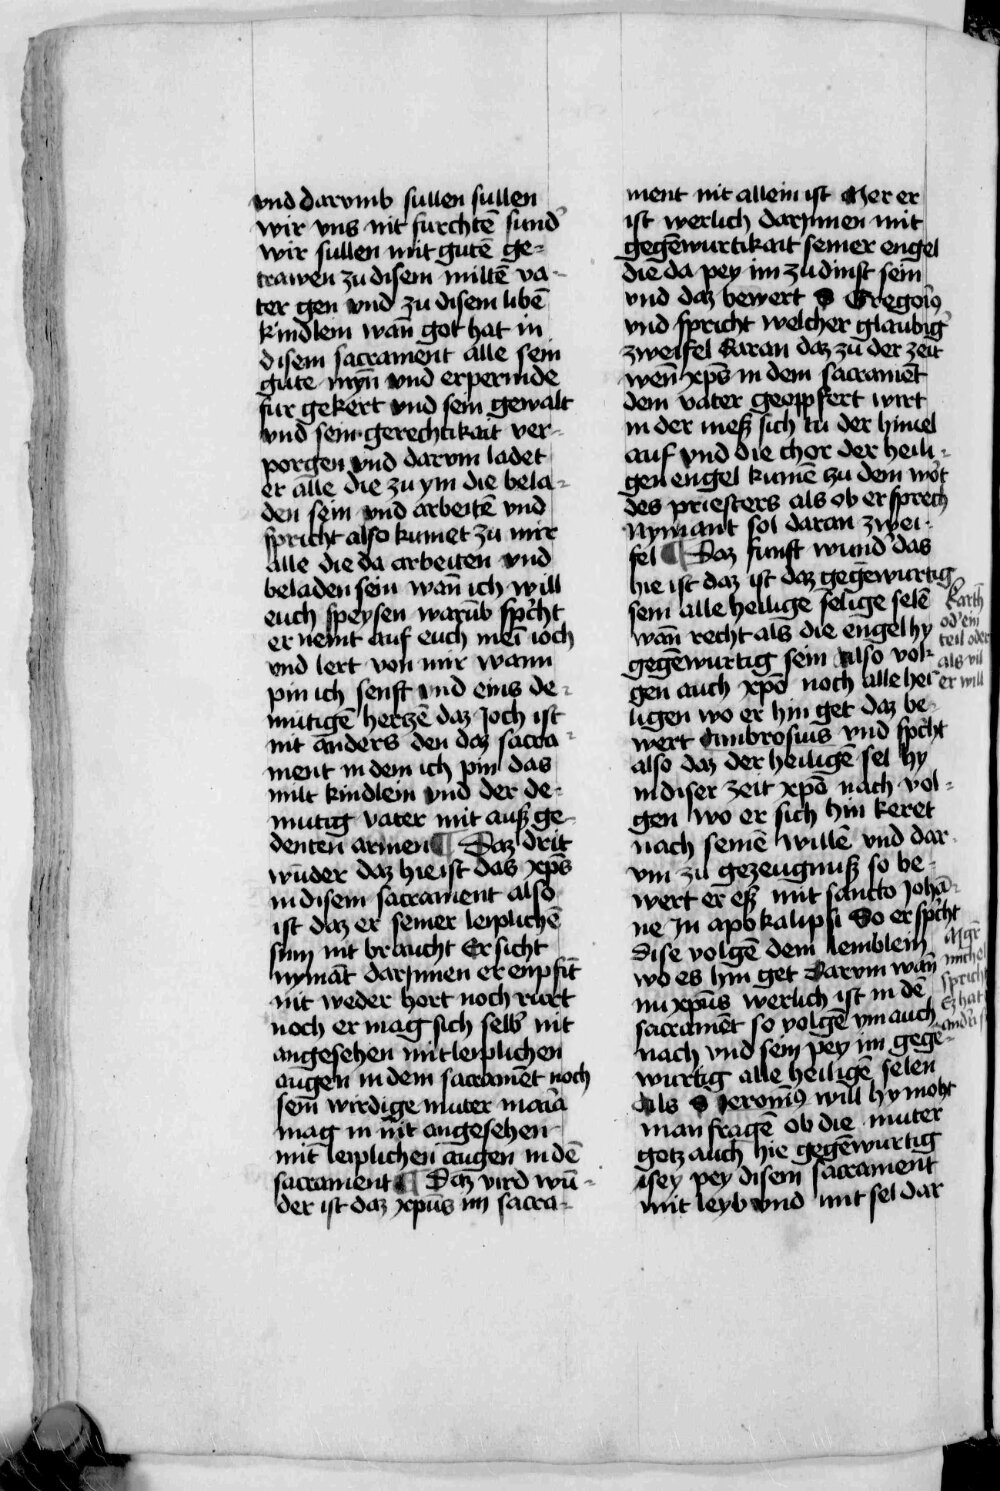 vnd darvmb sullen sullen
wir vns nit furchtē sund̉
wir sullen mit gutē ge-
trawen zu disem miltē va-
ter gen vnd zu disem libē
kindlein wan̄ got hat in
disem sacrament alle sein
gute myn̄ vnd erpermde
fur gekert vnd sein gewalt
vnd sein gerechtikait ver-
porgen vnd darvm ladet
er alle die zu ym die bela-
den sein vnd arbeitē vnd
spricht also kumet zu mir
alle die da arbeiten vnd
beladen sein wan̄ ich will
euch speysen warūb spc̄ht
er nemt auf euch mei͞ ioch
vnd lert von mir wann
pin ich senft vnd eins de-
mutigē hertzē daz Joch ist
nit anders den daz sacra-
ment in dem ich pin das
milt kindlein vnd der de-
mutig vater mit auß ge-
denten armen ¶ Daz drit
wūder daz hie ist das xp̄s
in disem sacrament also
ist daz er seiner leiplichē
sinn nit braucht Er sicht
nymāt darJnnen er enpfīt
nit weder hort noch rurt
noch er mag sich selb̉ nit
angesehen mit leiplichen
augen in dem sacramēt noch
sein̄ wirdige muter maria
mag in nit angesehen
mit leiplichen augen in dē
sacrament ¶ Daz vird wū-
der ist daz xpūs im sacra-
ment nit allein ist Mer er
ist werlich darJnnen mit
gegēwurtikait seiner engel
die da pey im zu dinst sein
vnd daz bewert S Gregoriꝰ
vnd spricht welcher glaubig̉
zweifel daran daz zu der zeit
wen̄ xp̄s in dem sacramēt
dem vater geoppfert wirt
in der meß sich tu der himel
auf vnd die chor der heili-
gen engel kumē zu dem wo̊t
des priesters als ob er sprech
Nymant sol daran zwei-
fel ¶ Daz funft wund̉ das
hie ist daz ist daz gegēwurtig
sein alle heilige selige selē
wan̄ recht als die engel hy
gegēwurtig sein also vol-
gen auch xpō noch alle hei-
ligen wo er hin get daz be-
wert Ambrosius vnd spc̄ht
also daz der heiligē sel hy
in diser zeit xpō nach vol-
gen wo er sich hin keret
nach seinē willē vnd dar-
vm zu gezeugnuß so be-
wert er eß mit sancto Johā-
ne In apokalipsi So er spc̄ht
dise volgē dem lemblein
wo es hin get Darvm wan̄
nu xpūs werlich ist in dē
sacramēt so volgē ym auch
nach vnd sein pey im gegē-
wurtig alle heiligē selen
Als S Jeronimꝰ will hy moht
man fragē ob die muter
gotz auch hie gegēwurtig
sey pey disem sacrament
mit leyb vnd mit sel dar
od̉ ein
teil oder
als vil
er will
Mgr̄
michel
spricht
Ez hat